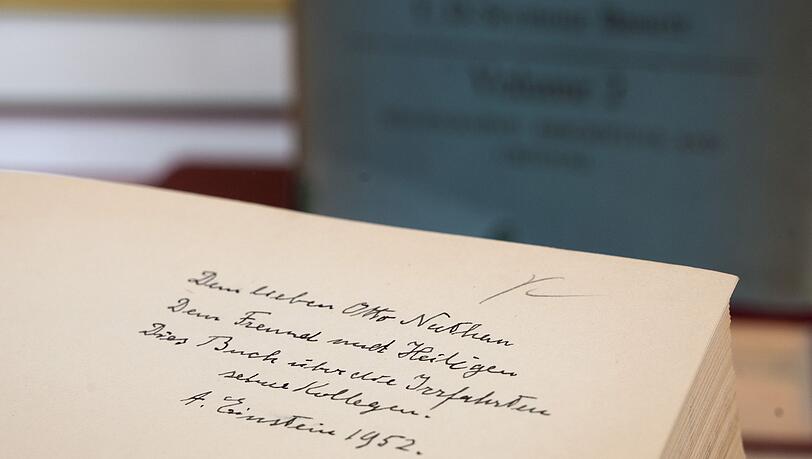 Volume 2
Dem lieben Otto Nathan
Dem Freund und Heiligen
Dies Buch über die Irrfahrten
seine Kollegen.
A. Einstein 1952.